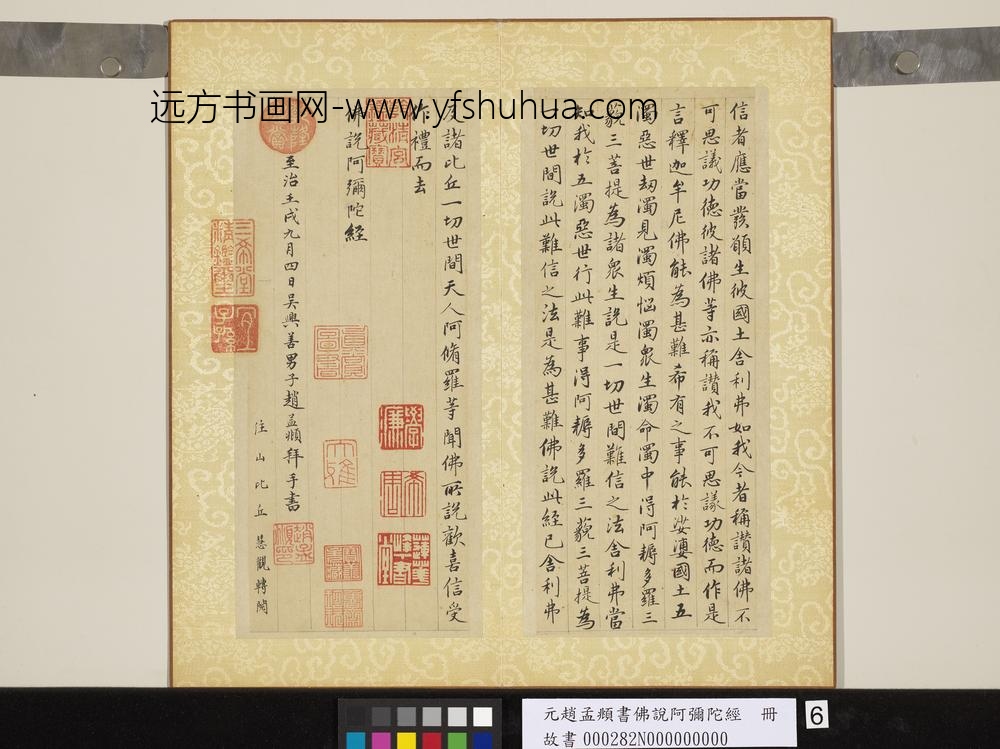 远方书画网-www.yfshuhua.com
信者應當發願生彼國土舍利弗如我今者稱讚諸佛不
可思議功德彼諸佛等亦稱讚我不可思議功德而作是
言釋迦牟尼佛能為甚難希有之事能於娑婆國土五
濁惡世劫濁見濁煩惱濁眾生濁命濁中得阿耨多羅三
藐三菩提為諸眾生說是一切世間難信之法舍利弗當
知我於五濁惡世行此難事得阿耨多羅三藐三菩提為
一切世間說此難信之法是為甚難佛說此經已舍利弗
及諸比丘一切世間天人阿脩羅等聞佛所說歡喜信受
作禮而去
佛說阿彌陀經
至治壬戌九月四日吳興善男子趙孟頫拜手書
住山比丘慧觀轉閱
三希堂精鑑璽
宜子孫
元趙孟頫書佛說阿彌陀經 冊
故書 000282N000000000
6